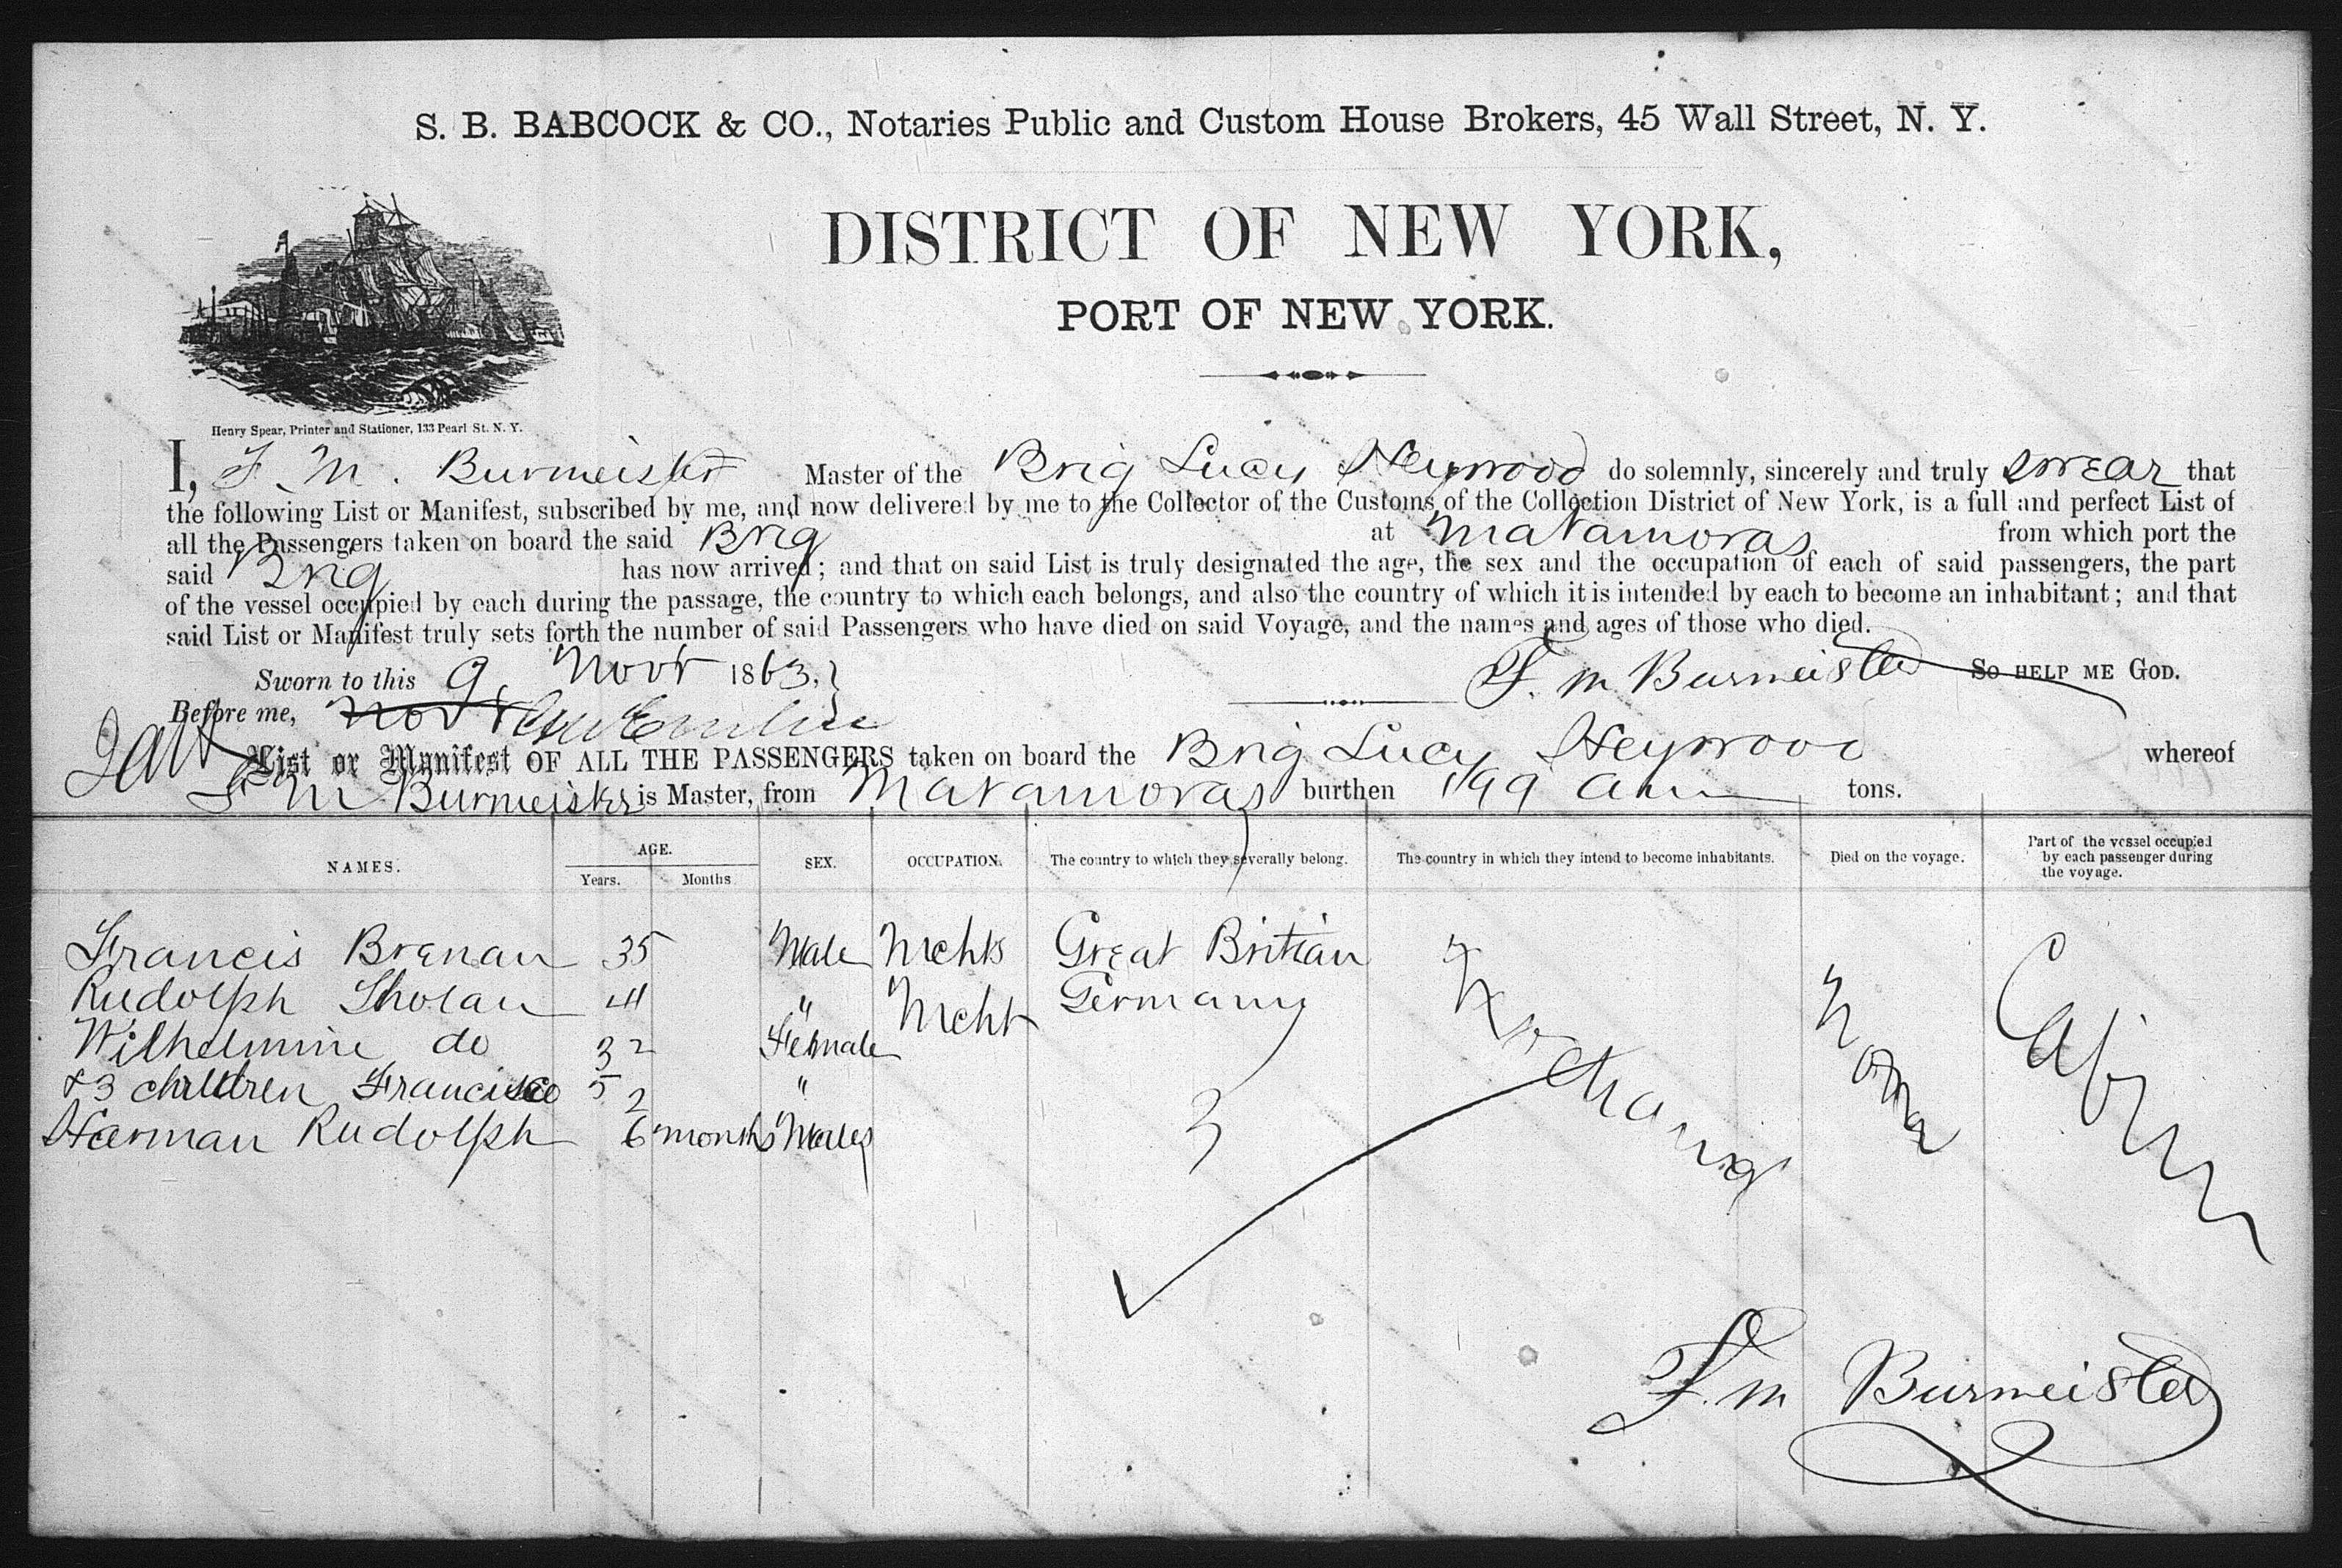 S. B. BABCOCK & CO., Notaries Public and Custom House Brokers, 45 Wall Street, N. Y.
DISTRICT OF NEW YORK,
PORT OF NEW YORK.
Henry Spear, Printer and Stationer, 133 Pearl St. N. Y.
I, F. M. Burmeister Master of the Brig Lucy Heywood do solemnly, sincerely and truly swear that
the following List or Manifest, subscribed by me, and now delivered by me to the Collector of the Customs of the Collection District of New York, is a full and perfect List of
all the Passengers taken on board the said Brig at Matamoras from which port the
said Brig has now arrived; and that on said List is truly designated the age, the sex and the occupation of each of said passengers, the part
of the vessel occupied by each during the passage, the country to which each belongs, and also the country of which it is intended by each to become an inhabitant; and that
said List or Manifest truly sets forth the number of said Passengers who have died on said Voyage, and the names and ages of those who died.
Sworn to this 9 Novr 1863. F. M Burmeister SO HELP ME GOD.
Before me,
List or Manifest OF ALL THE PASSENGERS taken on board the Brig Lucy Heywood whereof
F M Burmeister is Master, from Matamoras burthen 199 tons.
NAMES. AGE. Years. Months SEX. OCCUPATION. The country to which they severally belong. The country in which they intend to become inhabitants. Died on the voyage. Part of the vessel occupied by each passenger during the voyage.
Francis Brenan 35 Male Mchts Great Britian
Rudolph Sholan 41 " Mcht Germany
Wilhelmine do 32 Female
& 3 children Francisco 5 2 "
Harman Rudolph 6 months Males
None
Cabin
F. M Burmeister